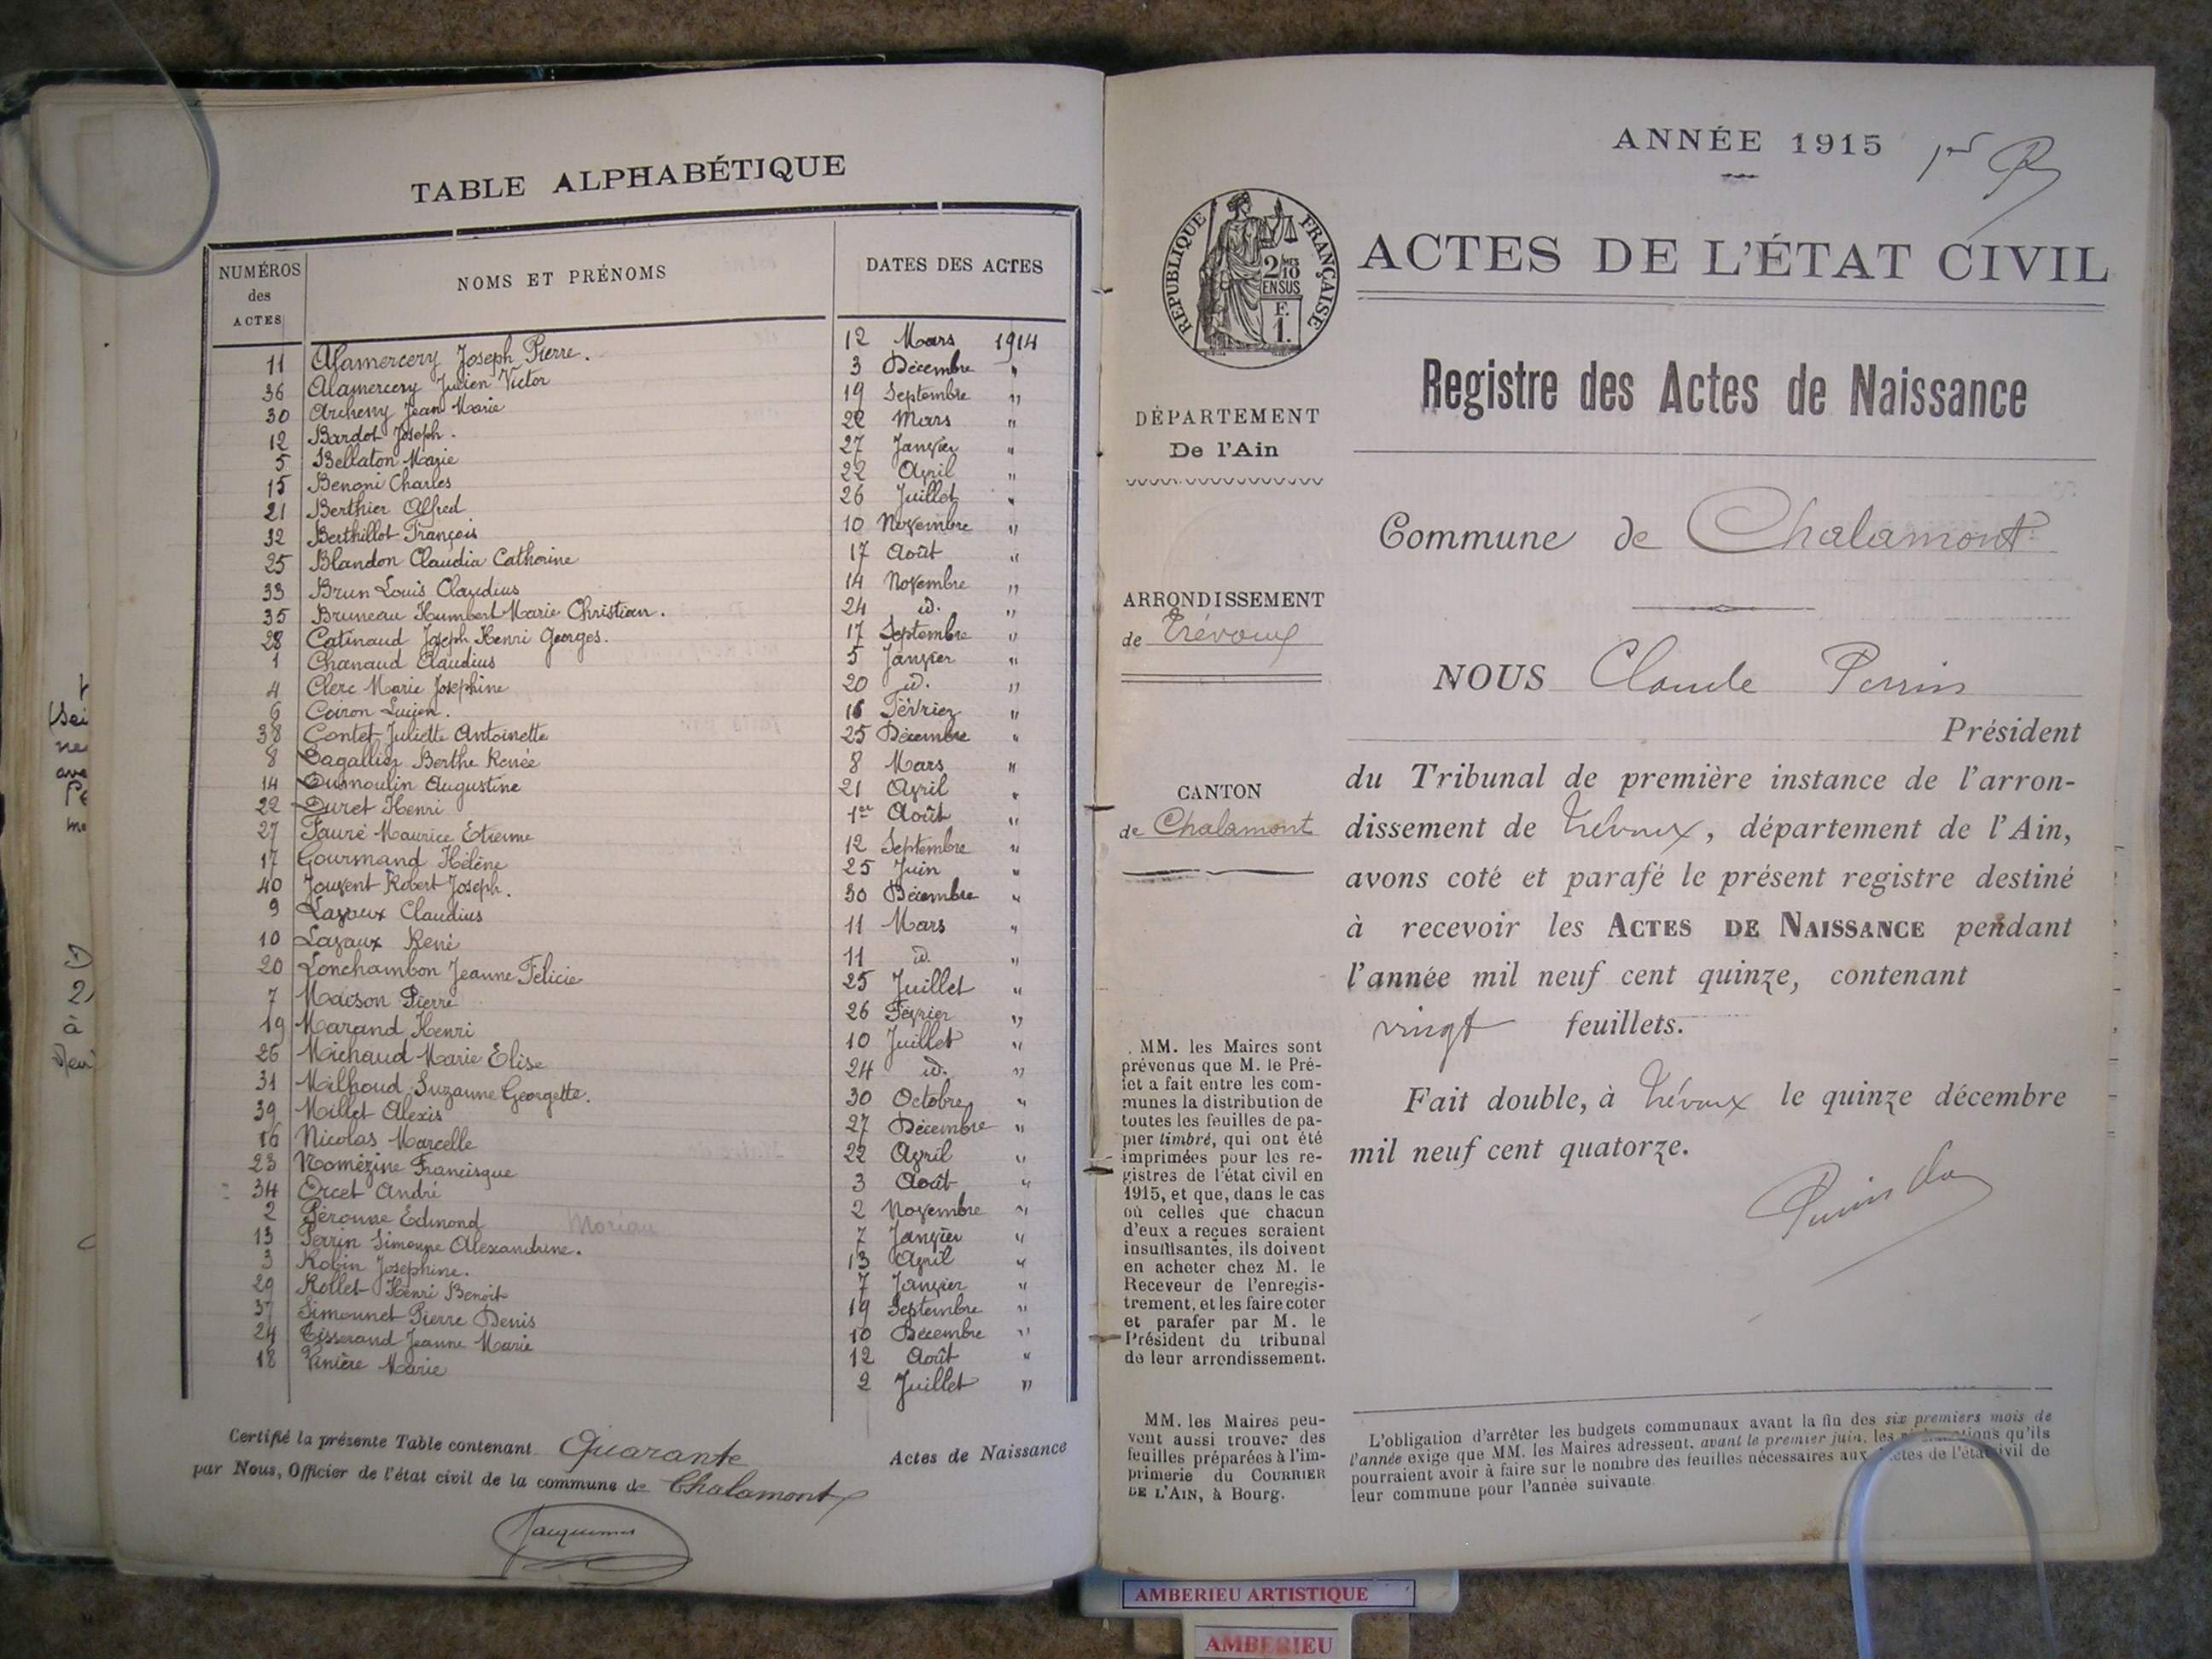 TABLE ALPHABÉTIQUE
NUMÉROS des ACTES
NOMS ET PRÉNOMS
DATES DES ACTES
11 Alamercery Joseph Pierre. 12 Mars 1914
36 Alamercery Julien Victor 3 Décembre "
30 Archeny Jean Marie 19 Septembre "
12 Bardot Joseph. 22 Mars "
5 Bellaton Marie 27 Janvier "
15 Benoni Charles 22 Avril "
21 Berthier Alfred 26 Juillet "
32 Berthillot François 10 Novembre "
25 Blandon Claudia Catherine 17 Août "
33 Brun Louis Claudius 14 Novembre "
35 Bruneau Humbert Marie Christian. 24 id. "
28 Catinaud Joseph Henri Georges. 17 Septembre "
1 Chanaud Claudius 5 Janvier "
4 Clerc Marie Josephine 20 id. "
6 Coiron Lucien. 16 Février "
38 Contet Juliette Antoinette 25 Décembre "
8 Dagallier Berthe Renée 8 Mars "
14 Dumoulin Augustine 21 Avril "
22 Duret Henri 1er Août "
27 Fauré Maurice Etienne 12 Septembre "
17 Gourmand Hélène 25 Juin "
40 Jouvent Robert Joseph. 30 Décembre "
9 Layaux Claudius 11 Mars "
10 Layaux René 11 id. "
20 Lonchambon Jeanne Félicie 25 Juillet "
7 Maison Pierre 26 Février "
19 Marand Henri 10 Juillet "
26 Michaud Marie Elise 24 id. "
31 Milhoud Suzanne Georgette. 30 Octobre "
39 Millet Alexis 27 Décembre "
16 Nicolas Marcelle 22 Avril "
23 Nomézine Francisque 3 Août "
34 Orcet André 2 Novembre "
2 Péronne Edmond Moriau 7 Janvier "
13 Perrin Simonne Alexandrine. 13 Avril "
3 Robin Josephine. 7 Janvier "
29 Rollet Henri Benoit 19 Septembre "
37 Simonnet Pierre Denis 10 Décembre "
24 Tisserand Jeanne Marie 12 Août "
18 Vinière Marie 2 Juillet "
Certifié la présente Table contenant Quarante Actes de Naissance
par Nous, Officier de l'état civil de la commune de Chalamont
ANNÉE 1915
RÉPUBLIQUE FRANÇAISE
2/10 EN SUS
F. 1.
ACTES DE L'ÉTAT CIVIL
Registre des Actes de Naissance
DÉPARTEMENT
De l'Ain
Commune de Chalamont
ARRONDISSEMENT
de Trévoux
NOUS Claude Perrin
Président
CANTON
de Chalamont
du Tribunal de première instance de l'arron-
dissement de Trévoux, département de l'Ain,
avons coté et parafé le présent registre destiné
à recevoir les ACTES DE NAISSANCE pendant
l'année mil neuf cent quinze, contenant
vingt feuillets.
Fait double, à Trévoux le quinze décembre
mil neuf cent quatorze.
MM. les Maires sont
prévenus que M. le Pré-
fet a fait entre les com-
munes la distribution de
toutes les feuilles de pa-
pier timbré, qui ont été
imprimées pour les re-
gistres de l'état civil en
1915, et que, dans le cas
où celles que chacun
d'eux a reçues seraient
insuffisantes, ils doivent
en acheter chez M. le
Receveur de l'enregis-
trement, et les faire coter
et parafer par M. le
Président du tribunal
de leur arrondissement.
MM. les Maires peu-
vent aussi trouver des
feuilles préparées à l'im-
primerie du COURRIER
DE L'AIN, à Bourg.
L'obligation d'arrêter les budgets communaux avant la fin des six premiers mois de
l'année exige que MM. les Maires adressent, avant le premier juin, les qu'ils
pourraient avoir à faire sur le nombre des feuilles nécessaires aux actes de l'état civil de
leur commune pour l'année suivante.
AMBERIEU ARTISTIQUE
AMBERIEU